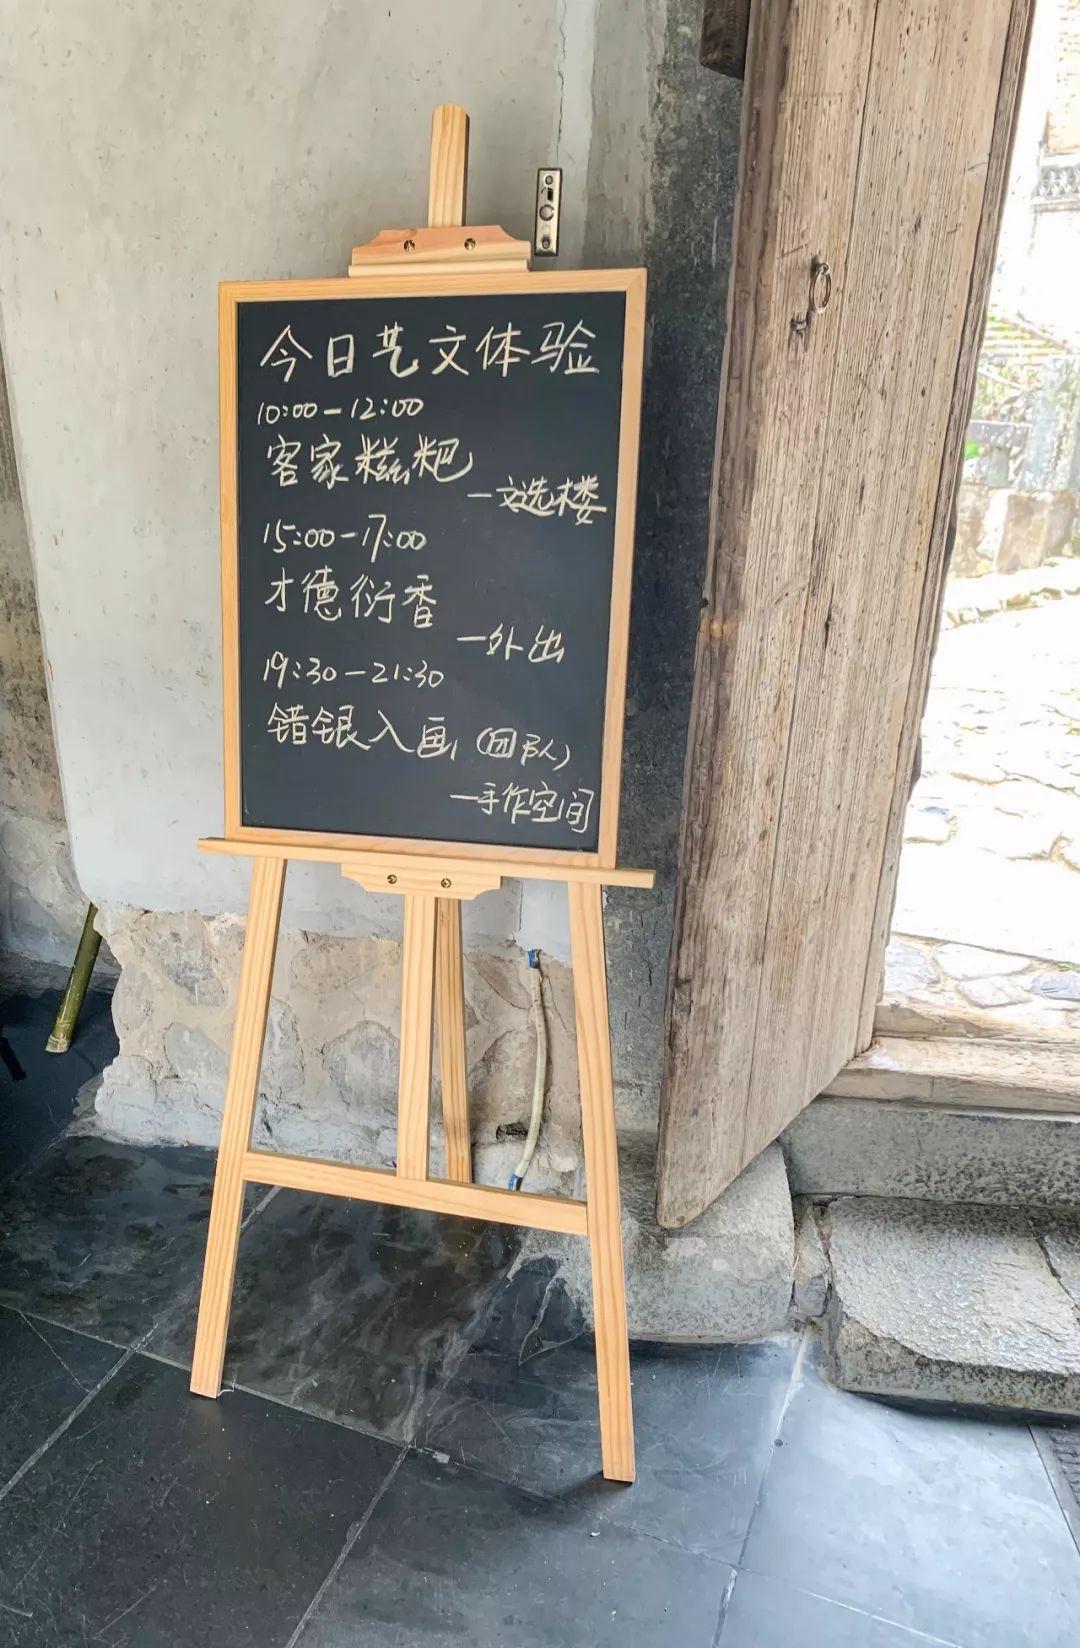 今日艺文体验
10:00-12:00
客家糍粑
—文选楼
15:00-17:00
才德衍香
—外出
19:30-21:30
错银入画(团队)
—手作空间